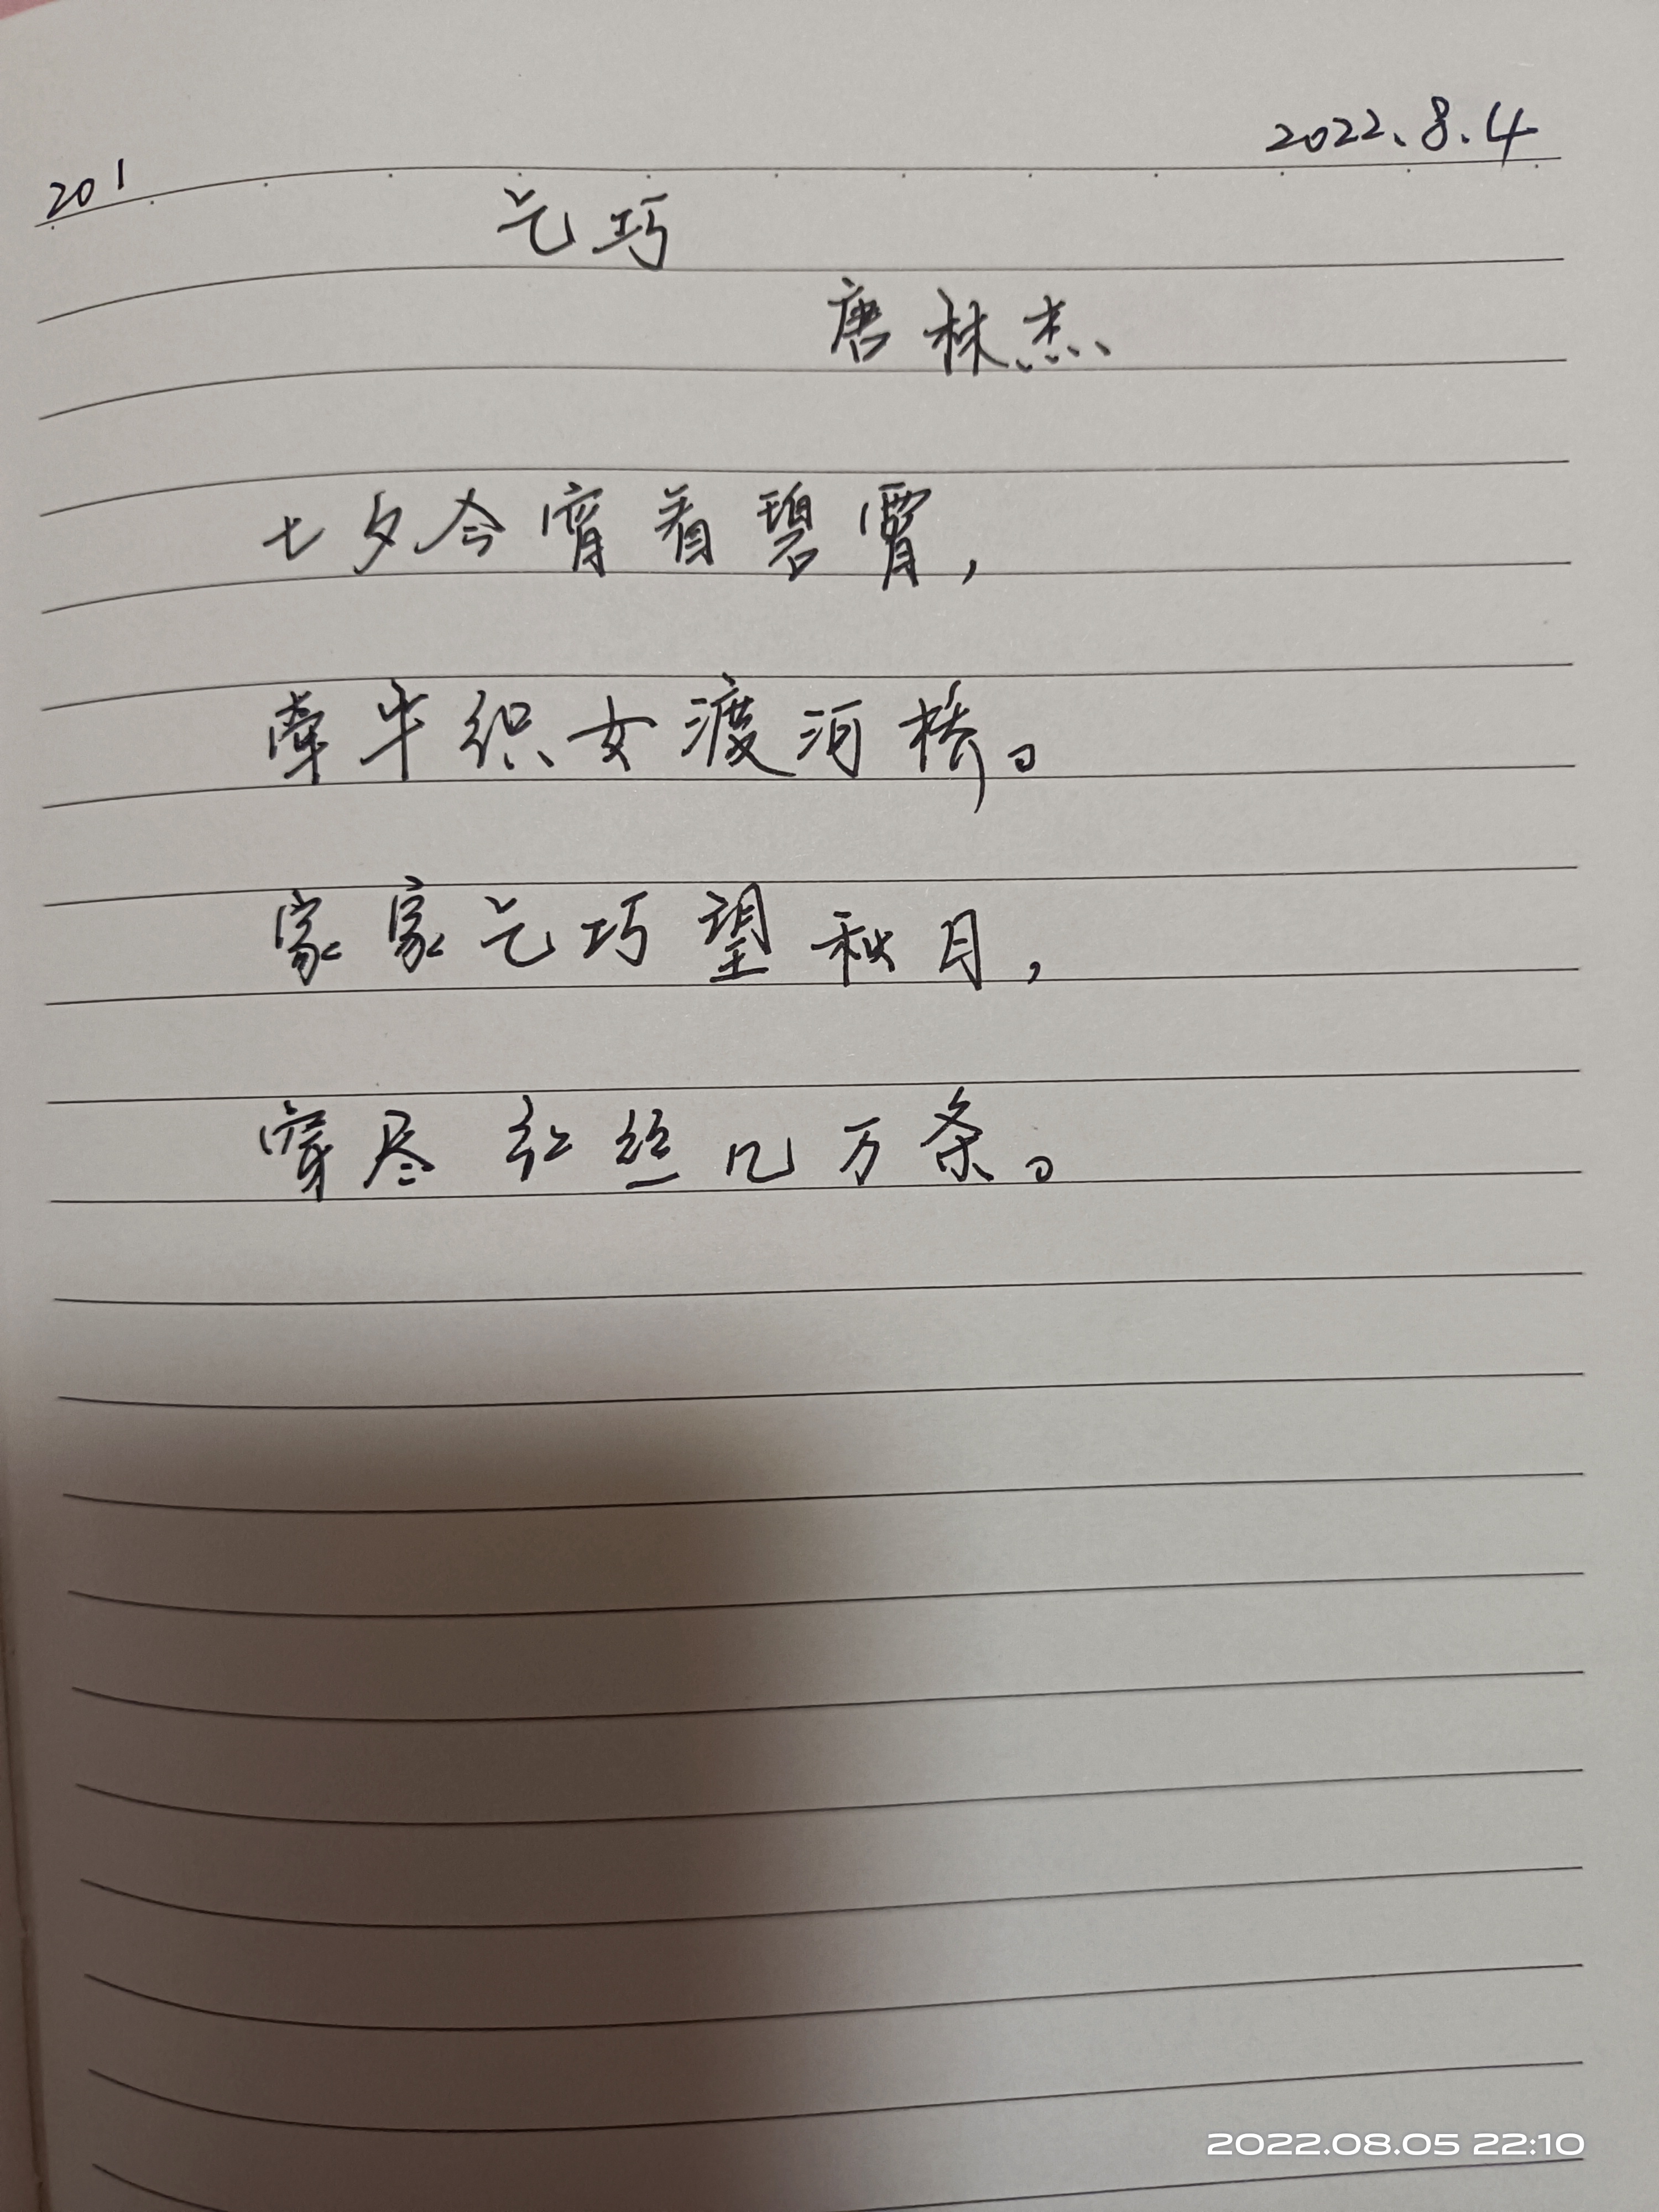 2022.8.4
201
乞巧
唐 林杰
七夕今宵看碧霄，
牵牛织女渡河桥。
家家乞巧望秋月，
穿尽红丝几万条。
2022.08.05 22:10